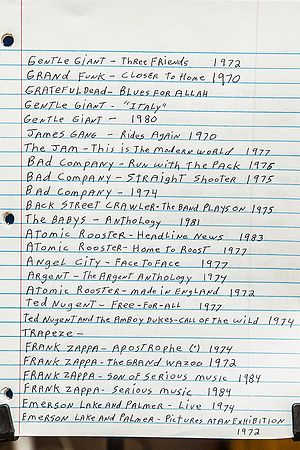 Gentle Giant - Three Friends 1972
Grand Funk - Closer to Home 1970
Grateful Dead - Blues for Allah
Gentle Giant - "Italy"
Gentle Giant - 1980
James Gang - Rides Again 1970
The Jam - This is the Modern World 1977
Bad Company - Run with the Pack 1976
Bad Company - Straight Shooter 1975
Bad Company - 1974
Back Street Crawler - The Band Plays on 1975
The Babys - Anthology 1981
Atomic Rooster - Headline News 1983
Atomic Rooster - Home to Roost 1977
Angel City - Face to Face 1977
Argent - The Argent Anthology 1974
Atomic Rooster - made in England 1972
Ted Nugent - Free-For-All 1977
Ted Nugent and the Amboy Dukes - Call of the wild 1974
Trapeze -
Frank Zappa - Apostrophe (') 1974
Frank Zappa - The Grand Wazoo 1972
Frank Zappa - Son of Serious music 1984
Frank Zappa - Serious music 1984
Emerson Lake and Palmer - Live 1974
Emerson Lake and Palmer - Pictures at an Exhibition
1972